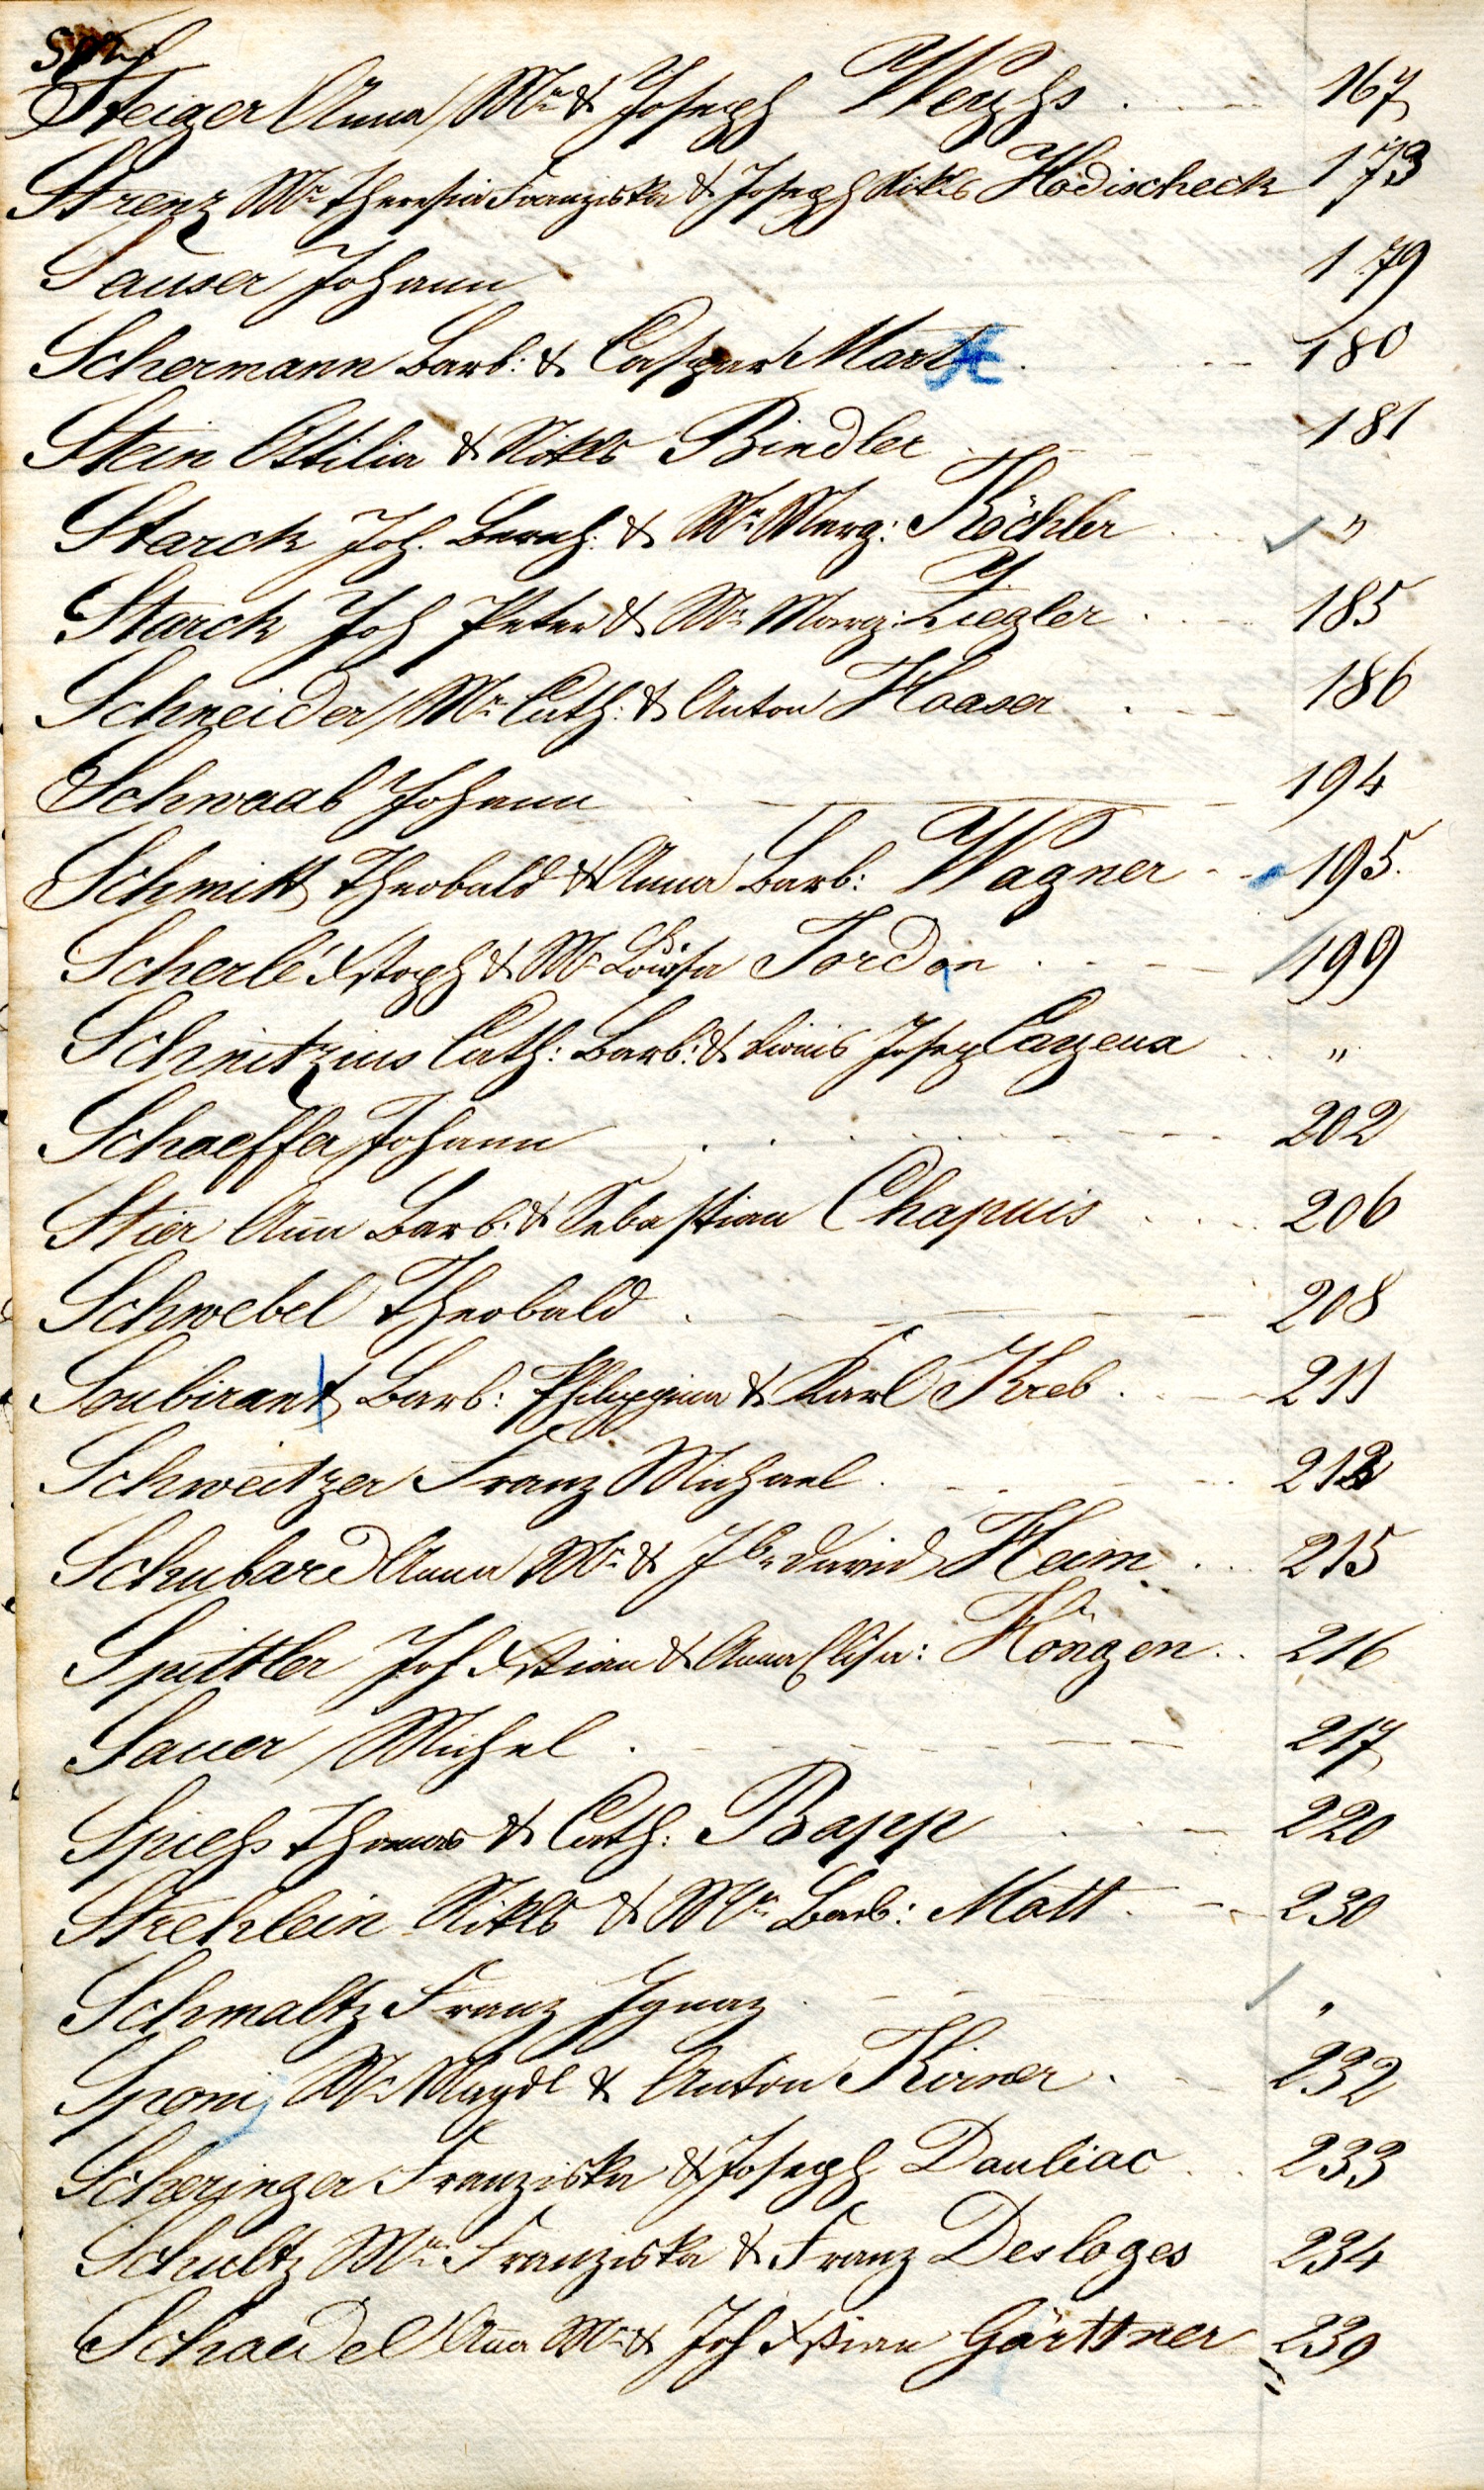 Steiger Anna Mª & Joseph Weyhs . . . 167
Strenz Mª Theresia Franziska & Joseph Nikls Hodischeck 173
Sauser Johann 179
Schermann Barb: & Caspar Mart . . . 180
Stein Ottilia & Nikls Bindler . . . 181
Starck Joh. Bernh: & Mª Marg: Köchler . . . "
Starck Joh Peter & Mª Marg: Ziegler . . . 185
Schneider Mª Cath: & Anton Haaser . . . 186
Schwaab Johann . . . 194
Schmitt Theobald & Anna Barb: Wagner . . 195.
Scherlé Xstoph & Mª Louisa Jordan . . . 199
Schnitzius Cath: Barb: & Louis Joseph Cayena . . "
Schaeffer Johann . . . 202
Stier Aña Barb: & Sebastian Chapuis . . . 206
Schwebel Theobald . . . 208
Soubirant Barb: Philippina & Karl Kreb . . . 211
Schweitzer Franz Michael . . . 212
Schubard Anna Mª & David Heim . . . 215
Spittler Joh Xstian & Anna Elisa: Höngen . . 216
Sauer Michel . . . 217
Spiehs Thomas & Cath: Bapp . . . 220
Strehlein Nikls & Mª Barb: Matt . . . 230
Schmaltz Franz Ignaz . . . "
Sponi Mª Magdl & Anton Kirner . . . 232
Scheringer Franziska & Joseph Dauliac . . 233
Schultz Mª Franziska & Franz Desloges 234
Schaedel Aña Mª & Joh Xstian Gärttner 239
"